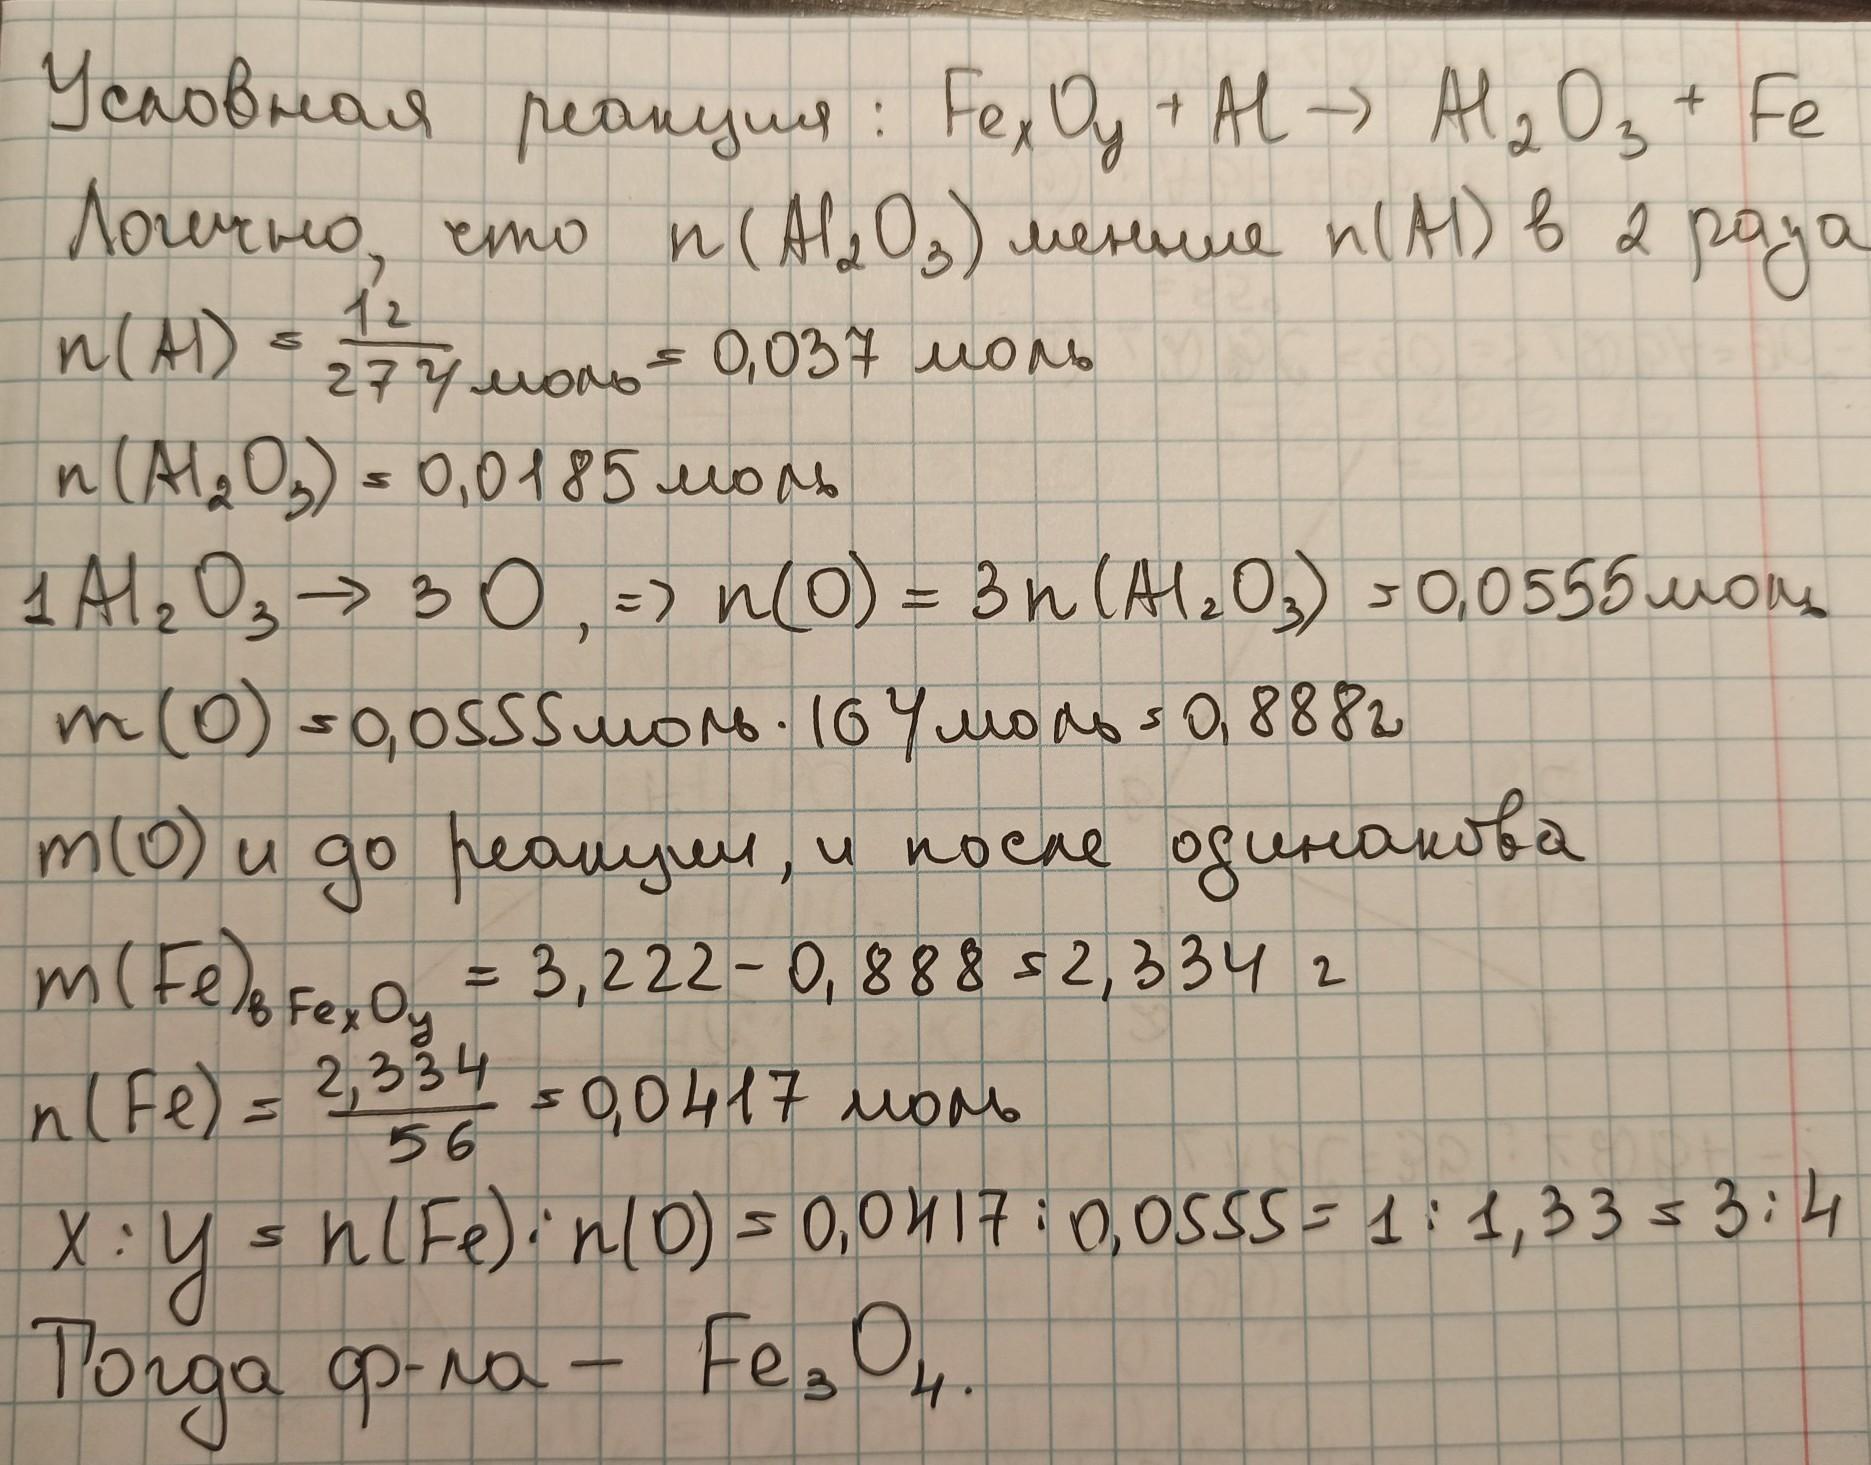 Условная реакция: FeₓOᵧ + Al → Al₂O₃ + Fe
Логично, что n(Al₂O₃) меньше n(Al) в 2 раза
n(Al) = 1г / 27 г/моль = 0,037 моль
n(Al₂O₃) = 0,0185 моль
1 Al₂O₃ → 3 O, => n(O) = 3n(Al₂O₃) = 0,0555 моль
m(O) = 0,0555 моль · 16 г/моль = 0,888 г
m(O) и до реакции, и после одинакова
m(Fe) в FeₓOᵧ = 3,222 - 0,888 = 2,334 г
n(Fe) = 2,334 / 56 = 0,0417 моль
x : y = n(Fe) : n(O) = 0,0417 : 0,0555 = 1 : 1,33 = 3 : 4
Тогда ф-ла – Fe₃O₄.